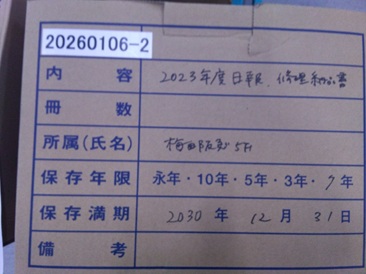 20260106-2
内容 2023年度日報、修理納品書
冊数
所属(氏名) 梅田阪急5F
保存年限 永年・10年・5年・3年・7年
保存満期 2030年12月31日
備考